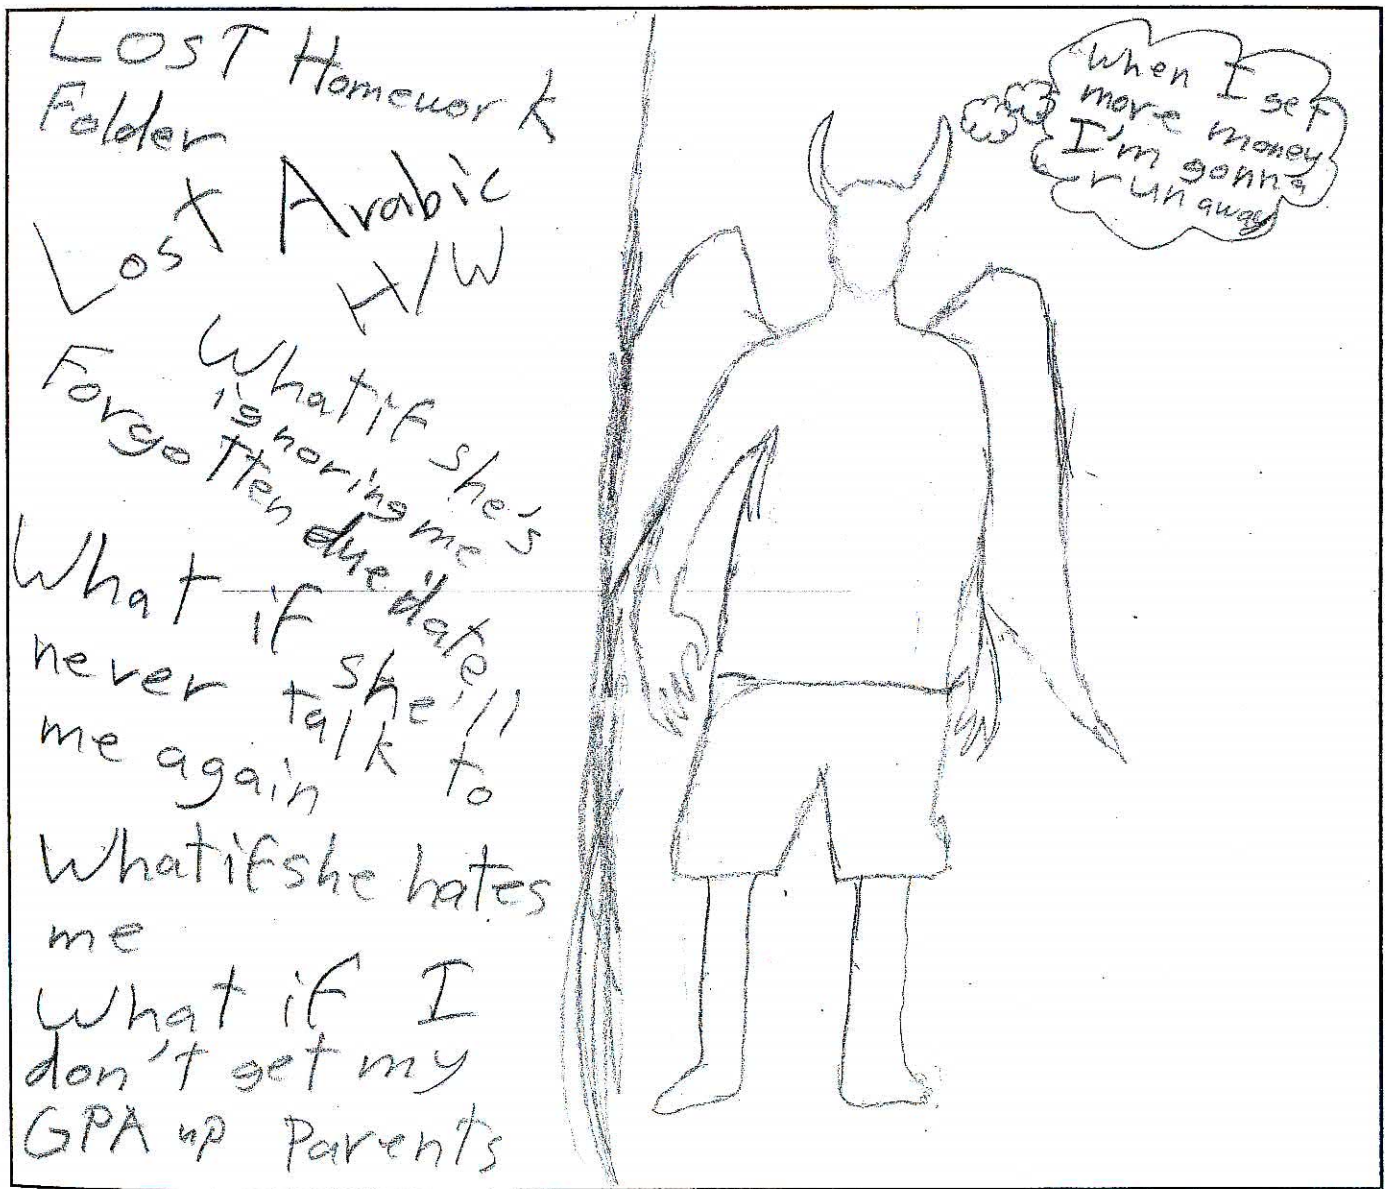 LOST Homework
Folder
Lost Arabic
H/W
What if she's
ignoring me
Forgotten due date
What if she'll
never talk to
me again
What if she hates
me
What if I
don't get my
GPA up Parents
When I get
more money
I'm gonna
run away